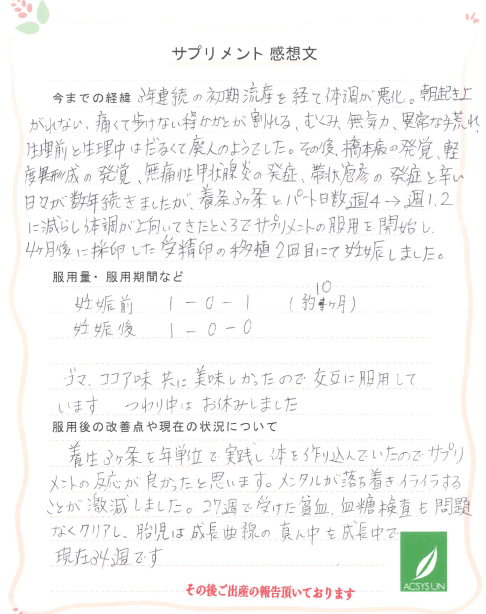 サプリメント 感想文
今までの経緯 3年連続の初期流産を経て体調が悪化。朝起き上
がれない、痛くて歩けない程かかとが割れる、むくみ、無気力、異常な手荒れ、
生理前と生理中はだるくて廃人のようでした。その後、橋本病の発覚、軽
度異形成の発覚、無痛性甲状腺炎の発症、帯状疱疹の発症と辛い
日々が数年続きましたが、養生3ヶ条とパート日数週4→週1.2
に減らし体調が上向いてきたところでサプリメントの服用を開始し、
4ヶ月後に採卵した受精卵の移植2回目にて妊娠しました。
服用量・服用期間など
妊娠前 1-0-1 (約10ヶ月)
妊娠後 1-0-0
ゴマ、ココア味 共に美味しかったので交互に服用して
います つわり中はお休みしました
服用後の改善点や現在の状況について
養生3ヶ条を年単位で実践し体を作り込んでいたのでサプリ
メントの反応が良かったと思います。メンタルが落ち着きイライラする
ことが激減しました。27週で受けた貧血、血糖検査も問題
なくクリアし、胎児は成長曲線の真ん中を成長中で
現在34週です
ACSYSUN
その後ご出産の報告頂いております